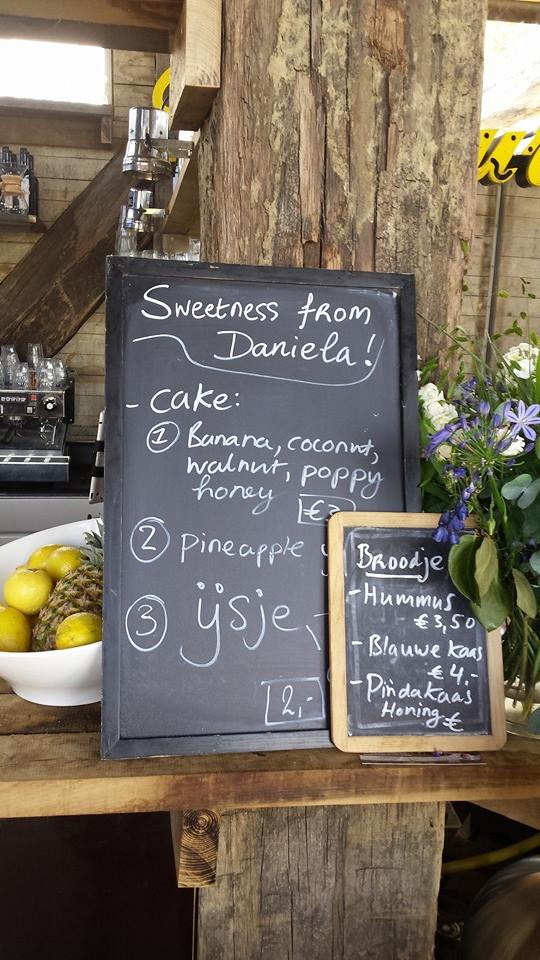 Sweetness from
Daniela!
- cake:
① Banana, coconut,
walnut, poppy
honey
② pineapple
③ ijsje,
2,-
Broodje
- Hummus
€ 3,50
- Blauwe kaas
€ 4.-
- Pindakaas
Honing €